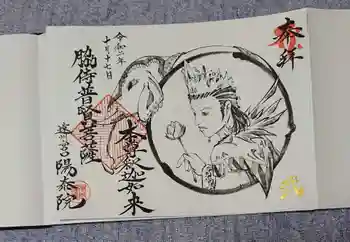 奉拝
本尊釈迦如来
令和二年
十月十七日
脇侍普賢菩薩
遠州
陽泰院